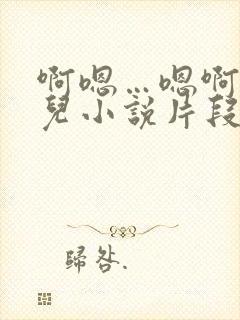 啊嗯…嗯啊
兒小說片段
歸咎.